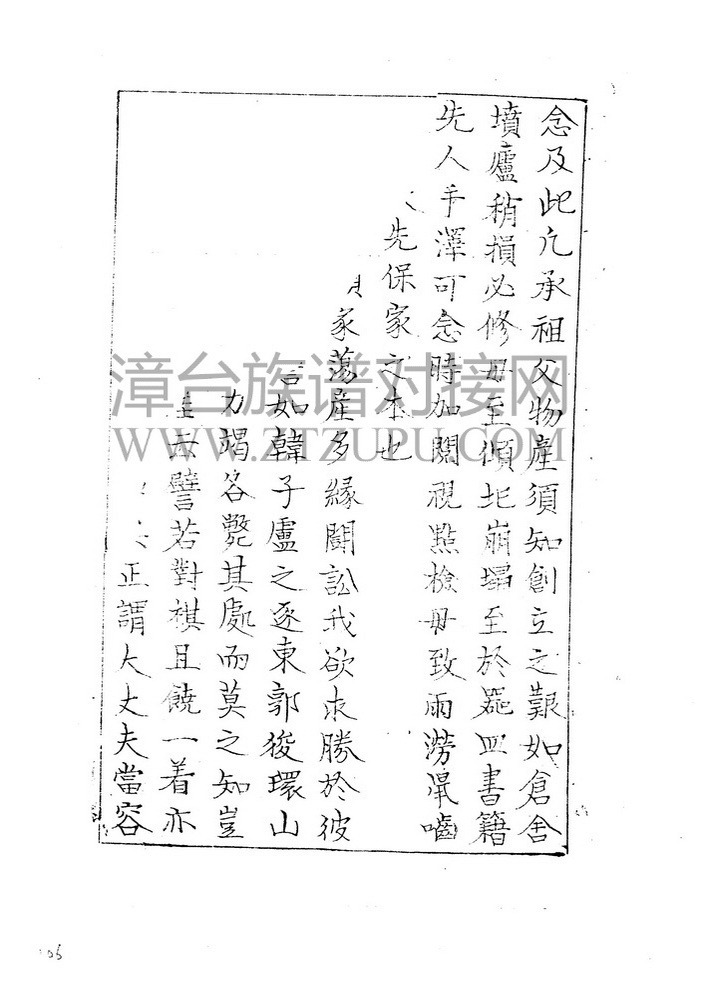 念及此凢承祖父物產須知創立之艱如倉舍
墳廬稍損必修毋至傾圯崩塌至於器皿書籍
先人手澤可念時加閱視點檢毋致雨澇鼠嚙
先保家之本也
家蕩產多緣鬪訟我欲求勝於彼
如韓子盧之逐東郭狻環山
力竭各斃其處而莫之知豈
云譬若對棋且饒一着亦
正謂大丈夫當容
漳台族谱对接网
WWW.ZTZUPU.COM